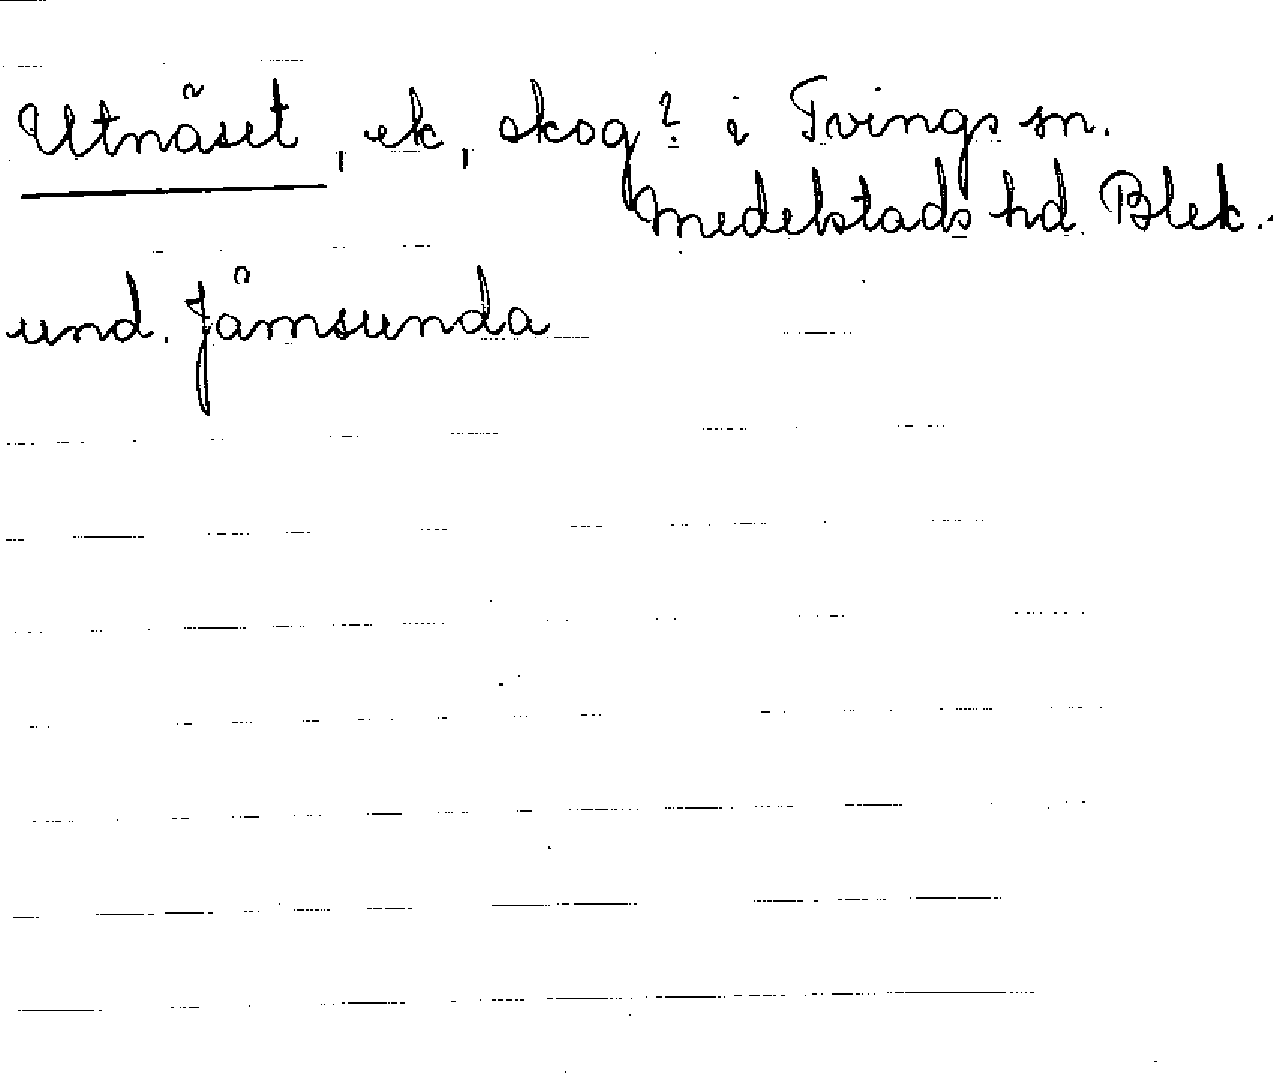 Utnäset, ek, skog? i Tvings sn.
Medelstads hd. Blek.
und. Jämsunda